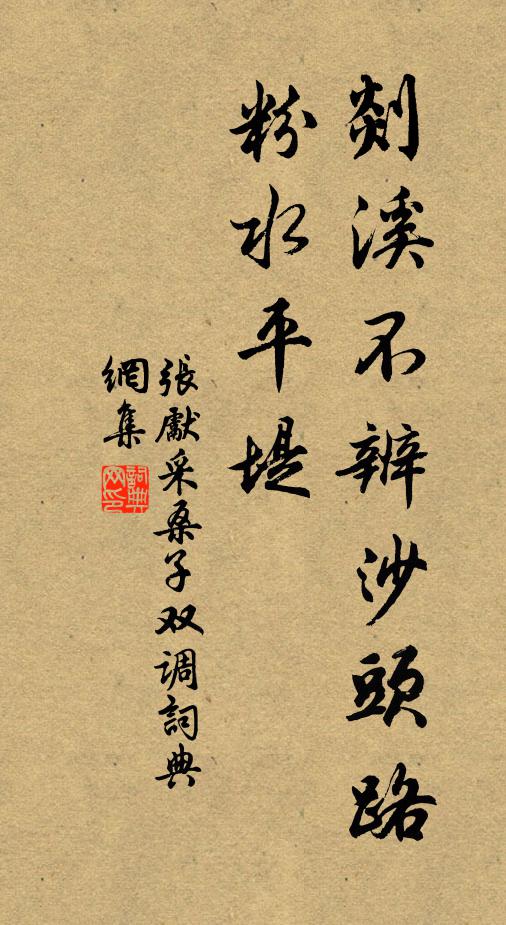 剡溪不辨沙頭路
粉水平堤
張獻采桑子双调詞典
網集
詞典
网印